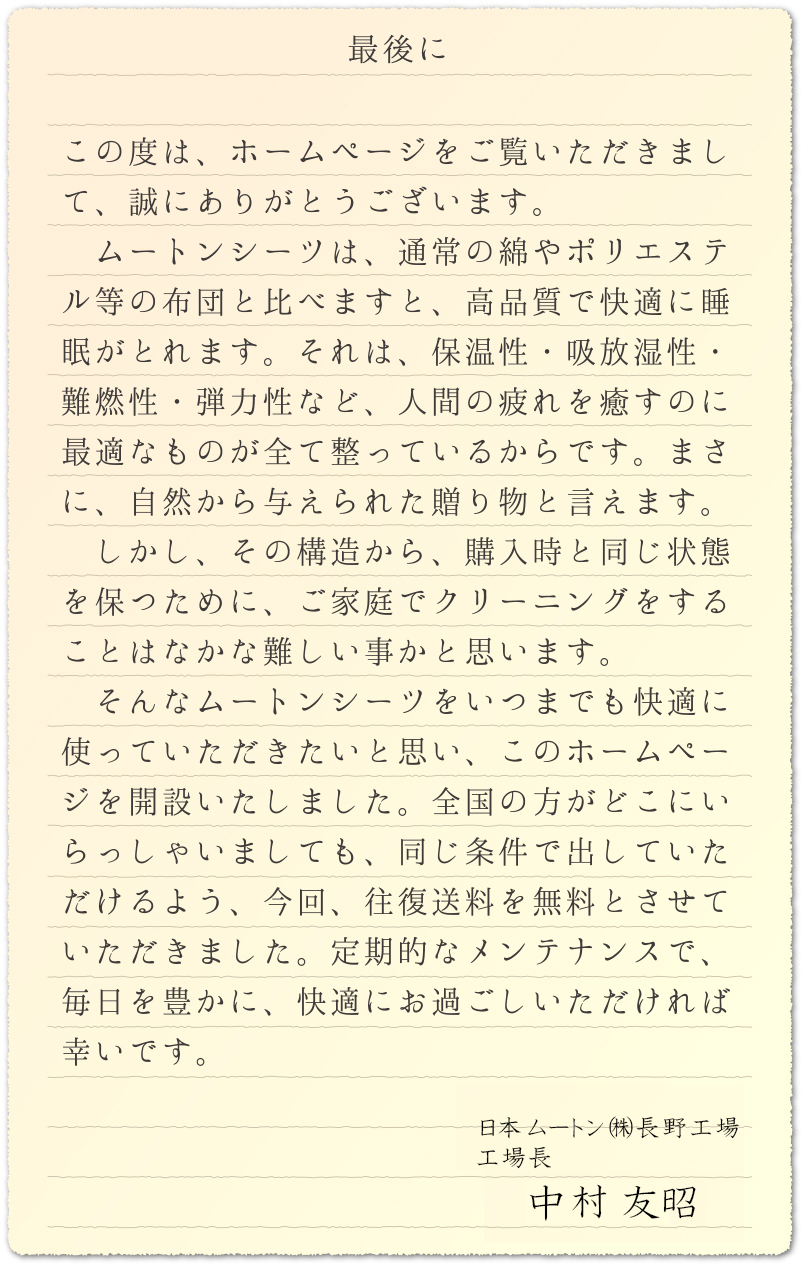 最後に
この度は、ホームページをご覧いただきまし
て、誠にありがとうございます。
　ムートンシーツは、通常の綿やポリエステ
ル等の布団と比べますと、高品質で快適に睡
眠がとれます。それは、保温性・吸放湿性・
難燃性・弾力性など、人間の疲れを癒すのに
最適なものが全て整っているからです。まさ
に、自然から与えられた贈り物と言えます。
　しかし、その構造から、購入時と同じ状態
を保つために、ご家庭でクリーニングをする
ことはなかな難しい事かと思います。
　そんなムートンシーツをいつまでも快適に
使っていただきたいと思い、このホームペー
ジを開設いたしました。全国の方がどこにい
らっしゃいましても、同じ条件で出していた
だけるよう、今回、往復送料を無料とさせて
いただきました。定期的なメンテナンスで、
毎日を豊かに、快適にお過ごしいただければ
幸いです。
日本ムートン㈱長野工場
工場長
中村 友昭